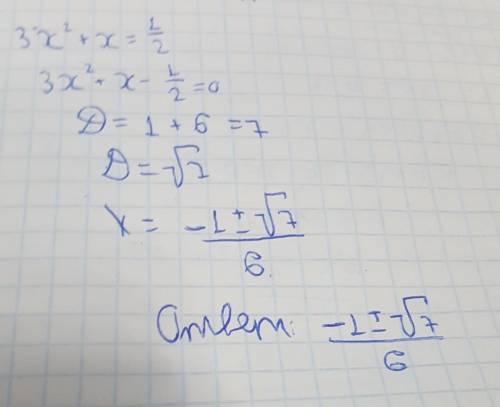 3x² + x = 1/2
3x² + x - 1/2 = 0
D = 1 + 6 = 7
D = √7
x = (-1 ± √7)/6
Ответ: (-1 ± √7)/6